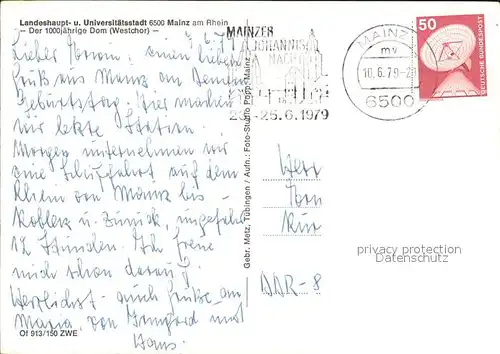 Landeshaupt- u. Universitätsstadt 6500 Mainz am Rhein
– Der 1000jährige Dom (Westchor) –
Lieber einen lieben
Gruß aus Mainz an Deinem
Geburtstag. Hier machen
wir letzte Station.
Morgen unternehmen wir
eine Schiffahrt auf dem
Rhein von Mainz bis
Koblenz u. zurück, ungefähr
12 Stunden. Ich freue
mich schon darauf.
Herzlichst auch Grüße an
Maria, von Irmgard und
Hans.
Of 913/150 ZWE
Gebr. Metz, Tübingen / Aufn.: Foto-Studio Popp, Mainz
MAINZER
JOHANNIS
NACHT
23.-25.6.1979
MAINZ
mv
10.6.79-20
6500
50
DEUTSCHE BUNDESPOST
Herr
DDR-8
privacy protection
Datenschutz